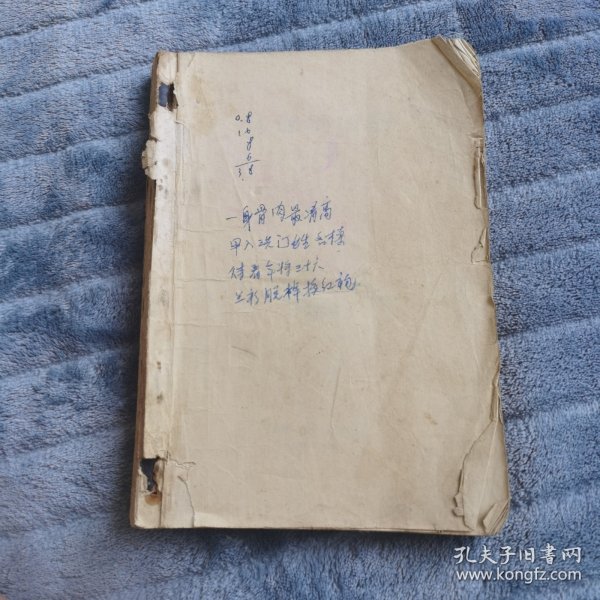 0.8
1.6
8
6
3.8
一身骨肉最清高
早入门姓名標
待看年将三十六
兰衫脱换红袍
孔夫子旧书网
www.kongfz.com